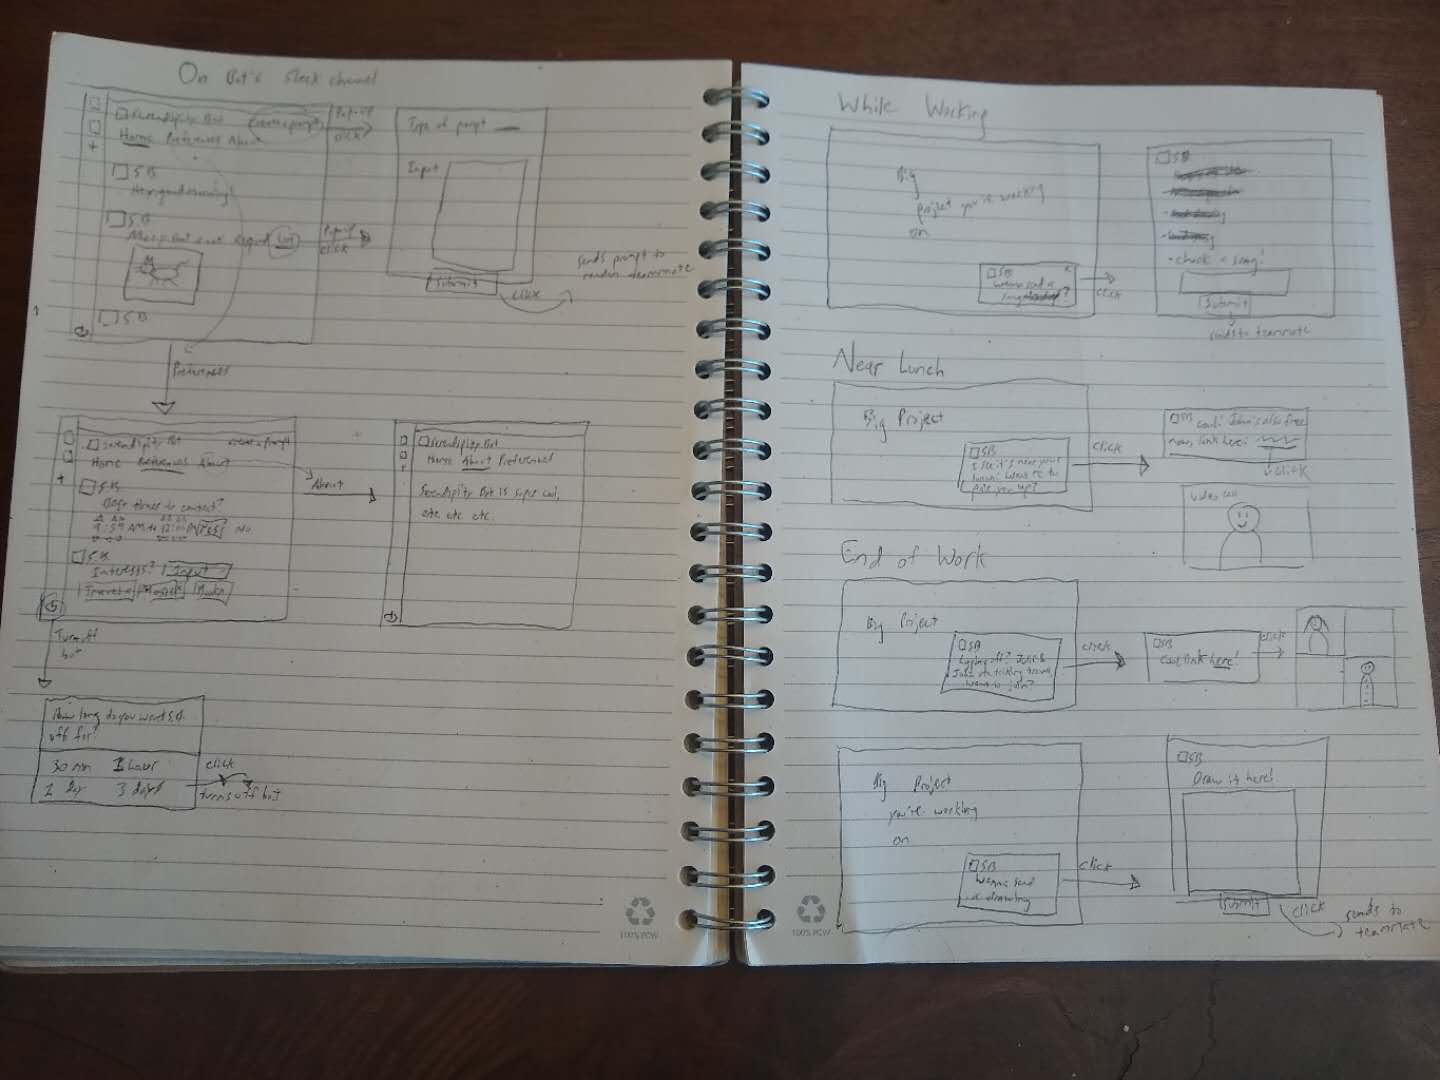 On Bot's Slack channel
Serendipity Bot
create a prompt
Home Preferences About
SB
Hey good morning!
SB
SB
Pop-up
click
Pop-up
click
Type of prompt
Input
Submit
click
sends prompt to
random teammate
Preferences
Serendipity Bot
create a prompt
Home Preferences About
SB
Best times to contact?
SB
Interests? Input
Travel
Books
About
Serendipity Bot
Home About Preferences
Serendipity Bot is super cool,
etc. etc. etc.
Turn off
bot
How long do you want S.B.
off for?
30 min 1 hour
1 day 3 days
click
turns off bot
100% PCW
While Working
Big
project you're working
on
SB x
wanna send a
song ?
click
SB
- check a song!
Submit
sends to teammate
Near Lunch
Big Project
SB
I see it's near your
lunch! Want me to
pair you up?
click
SB cool! John's also free
now, link here:
click
video call
End of Work
Big Project
SB
Logging off?
want to join?
click
SB
Cool link here!
click
Big Project
you're working
on
SB
Wanna send
a drawing
click
SB
Draw it here!
Submit
click
sends to
teammate
100% PCW